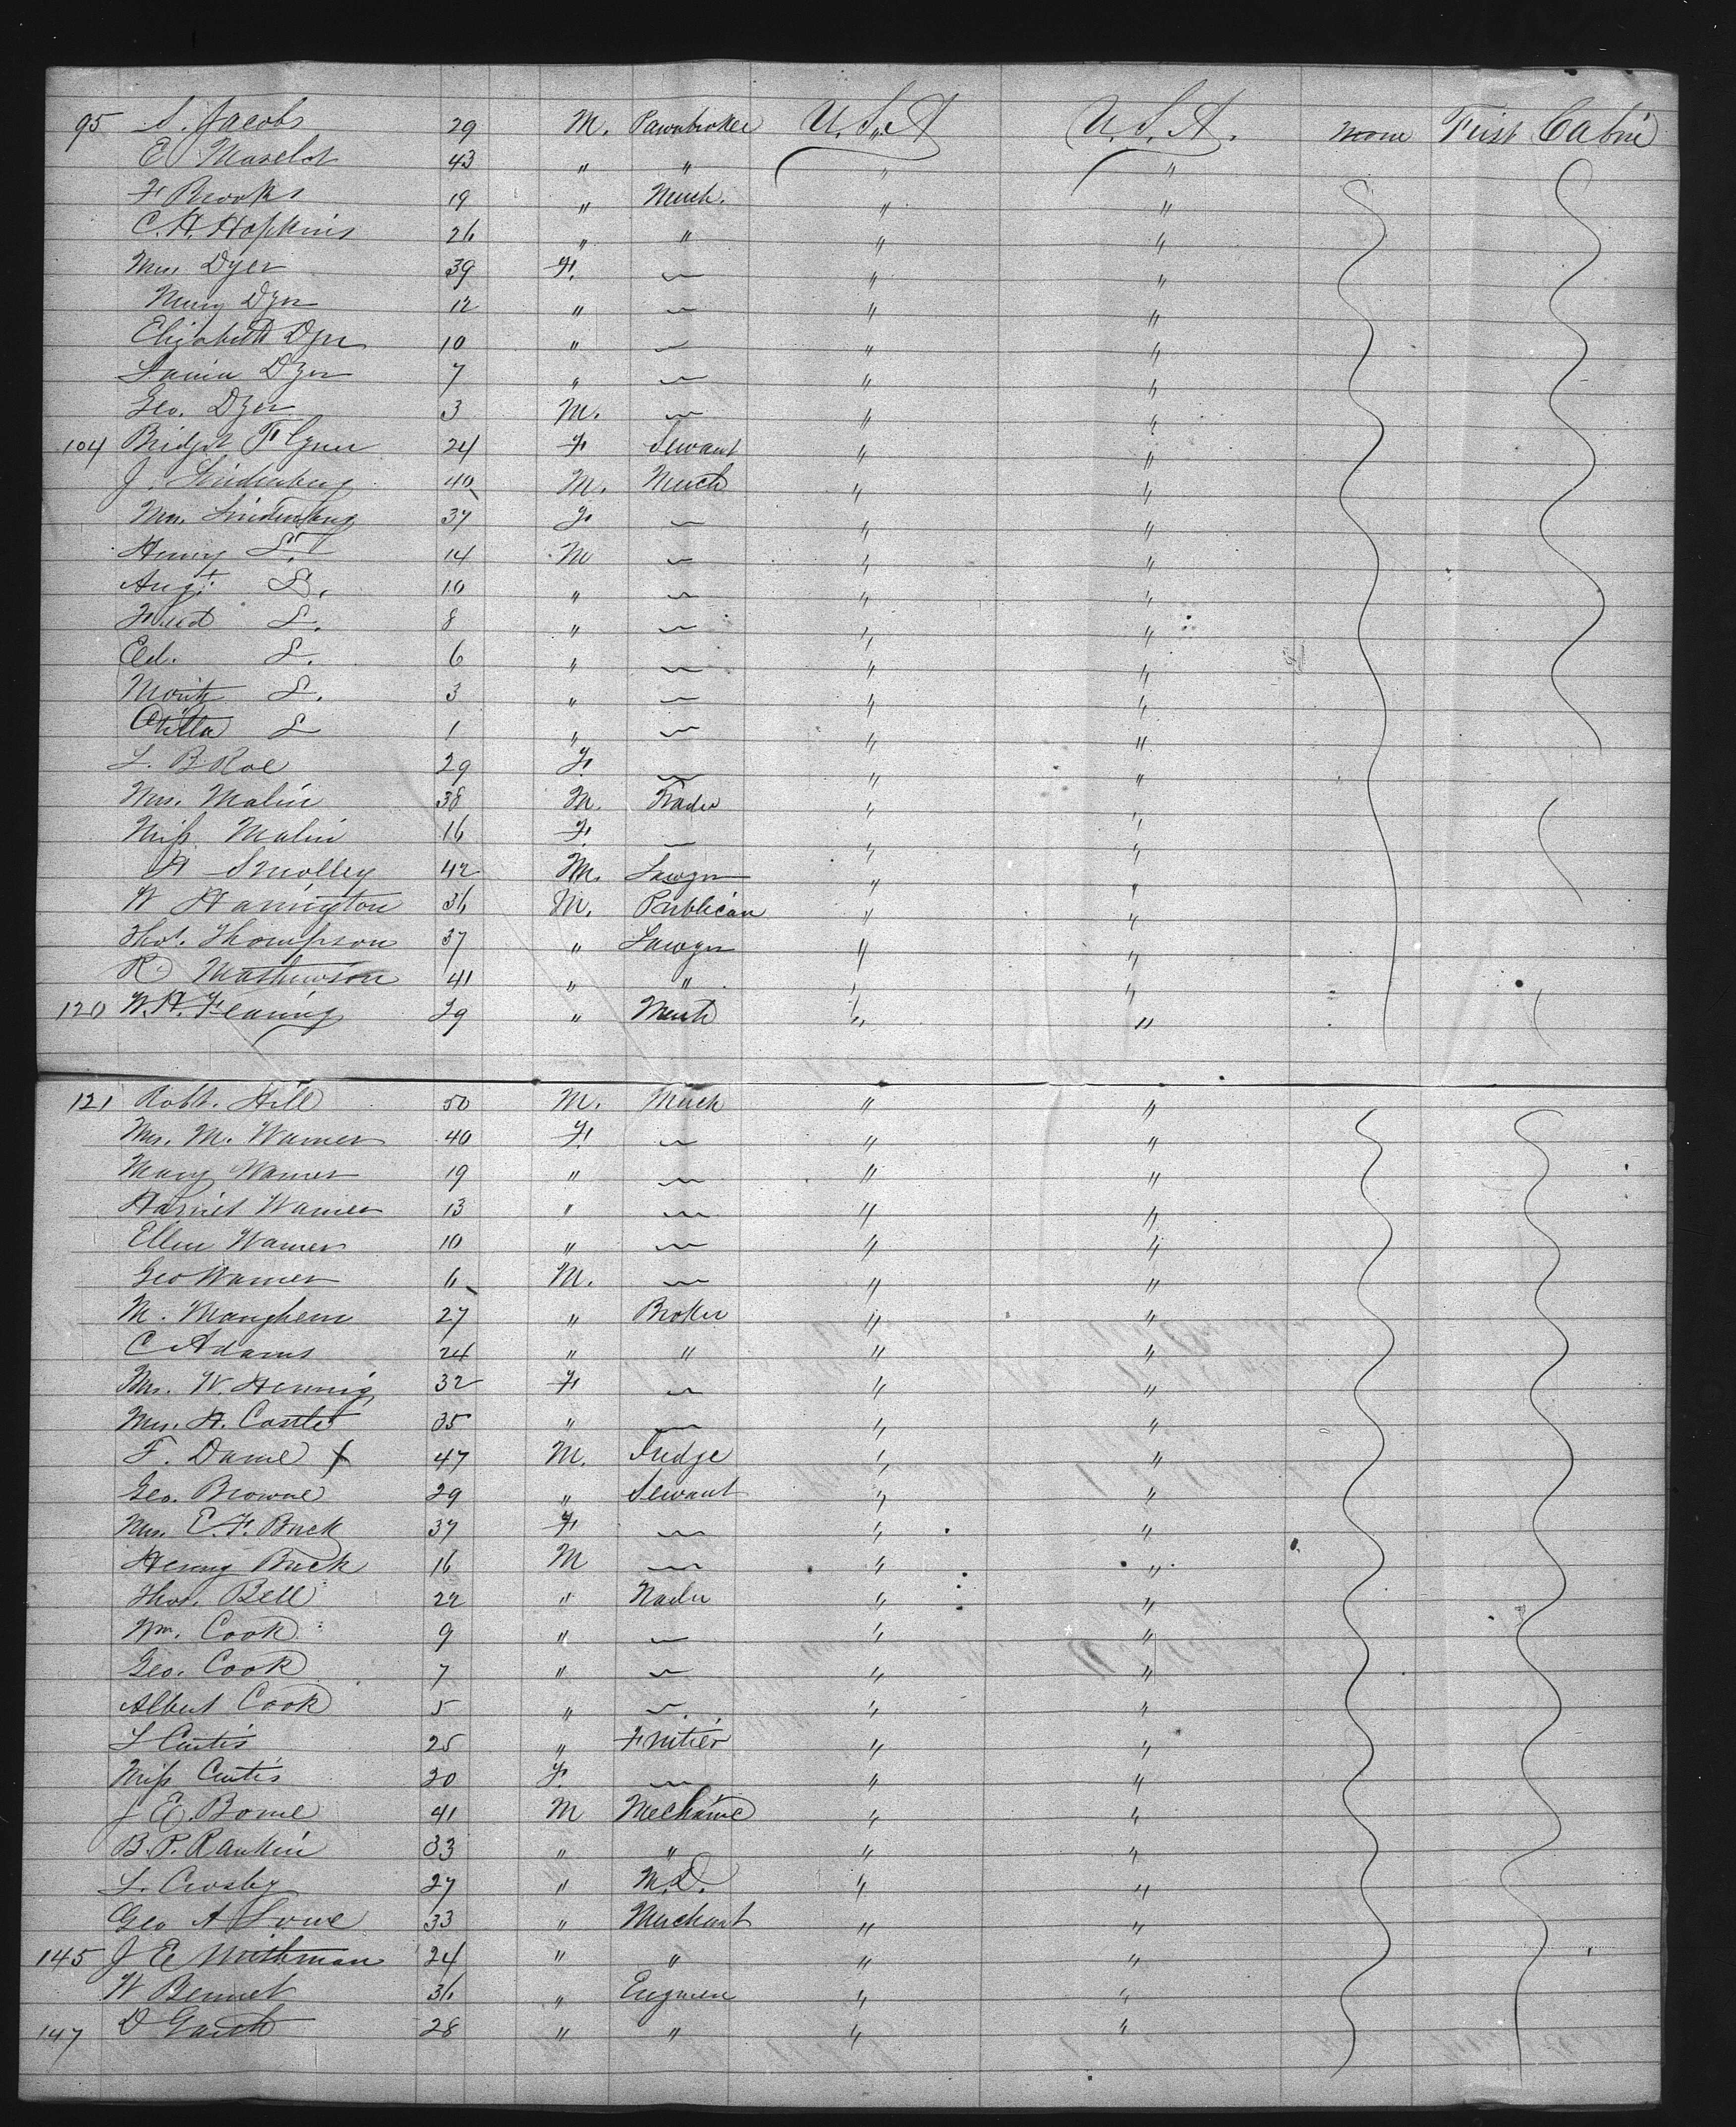 95 S. Jacobs 29 M. Pawnbroker U.S.A U.S.A. none First Cabin
E Maselot 43 " " " "
F Brooks 19 " Merch. " "
C. H. Hopkins 26 " " " "
Mrs Dyer 39 F. — " "
Mary Dyer 12 " — " "
Elizabeth Dyer 10 " — " "
Dyer 7 " — " "
Geo. Dyer 3 M. — " "
104 Bridget Flynn 24 F Servant " "
J. Lindenberg 40 M. Merch " "
Mrs. Lindenberg 37 F — " "
Henry L. 14 M — " "
Augt. L. 10 " — " "
Fred L. 8 " — " "
Ed. L. 6 " — " "
Moritz L. 3 " — " "
Otilla L 1 " — " "
L. B. Roe 29 F. — " "
Mrs. Malin 38 M. Trader " "
Miss Malin 16 F. — " "
H Smolley 42 M. Lawyer " "
W Harrington 36 M. Publican " "
Thos. Thompson 37 " Lawyer " "
R. Mathewson 41 " " " "
120 W. H. Fearing 29 " Merch " "
121 Robt. Hill 50 M. Merch " "
Mrs. M. Warner 40 F. — " "
Mary Warner 19 " — " "
Harriet Warner 13 " — " "
Ellen Warner 10 " — " "
Geo Warner 6 M. — " "
M. Manghem 27 " Broker " "
C Adams 24 " " " "
Mrs. W. Hennig 32 F — " "
Mrs. H. Castle 35 " — " "
F. Dame X 47 M. Judge " "
Geo. Browne 29 " Servant " "
Mrs. E. F. Buck 37 F — " "
Henry Buck 16 M — " "
Thos. Bell 22 " Trader " "
Wm. Cook 9 " — " "
Geo. Cook 7 " — " "
Albert Cook 5 " — " "
L Curtis 25 " Fruitier " "
Miss Curtis 20 F. — " "
J E. Borne 41 M Mechanic " "
B. P. Rankin 33 " " " "
L. Crosby 27 " M.D. " "
Geo A Lowe 33 " Merchant " "
145 J E Worthman 24 " " " "
W Bennet 36 " Engineer " "
147 D 28 " " " "